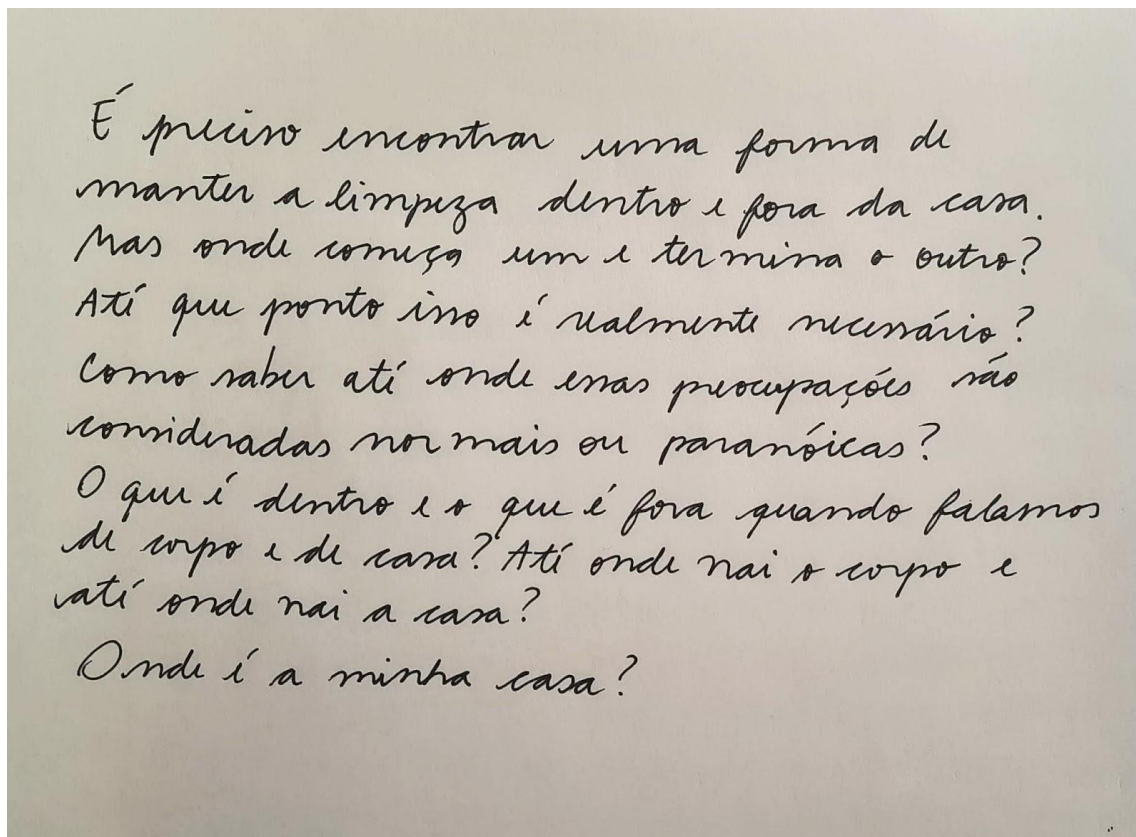 É preciso encontrar uma forma de
manter a limpeza dentro e fora da casa.
Mas onde começa um e termina o outro?
Até que ponto isso é realmente necessário?
Como saber até onde essas preocupações são
consideradas normais ou paranóicas?
O que é dentro e o que é fora quando falamos
de corpo e de casa? Até onde vai o corpo e
até onde vai a casa?
Onde é a minha casa?